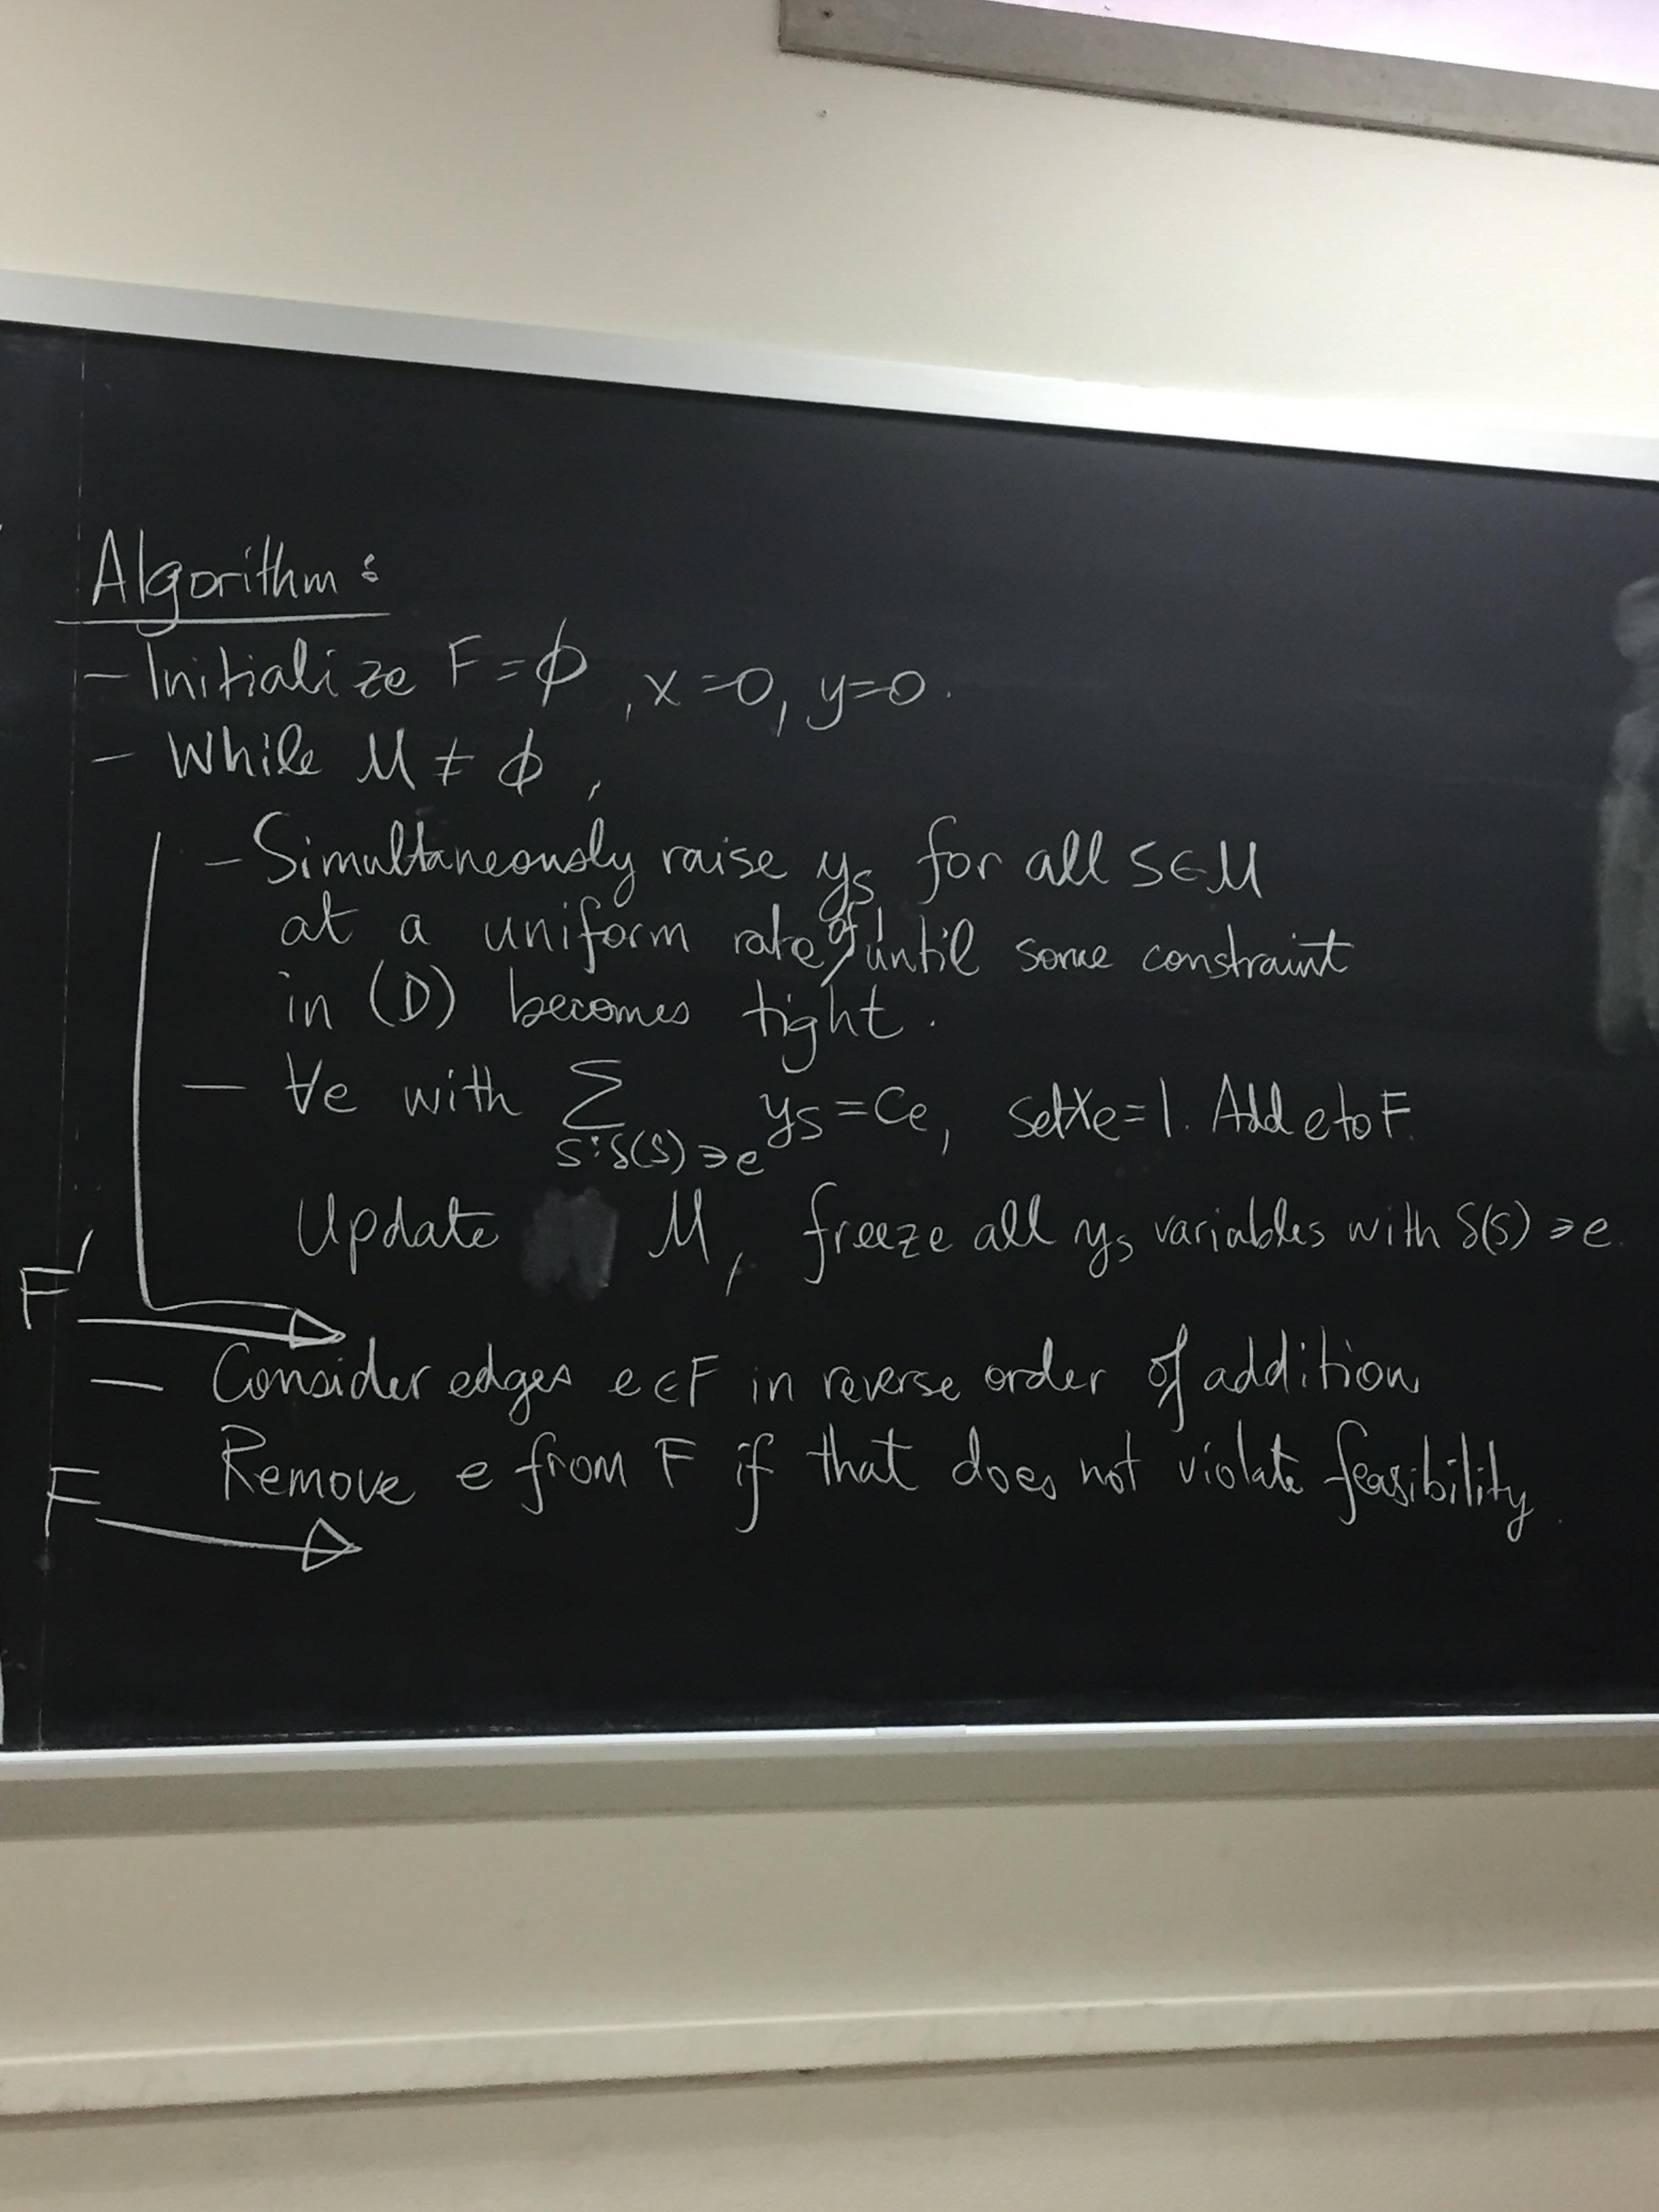 Algorithm:
- Initialize F = ϕ, x=0, y=0.
- While M ≠ ϕ,
- Simultaneously raise y_S for all S∈M
at a uniform rate of 1 until some constraint
in (D) becomes tight.
- ∀e with ∑_{S:δ(S)∋e} y_S = c_e, set x_e=1. Add e to F.
Update M, freeze all y_S variables with δ(S)∋e.
F'
- Consider edges e∈F in reverse order of addition
Remove e from F if that does not violate feasibility.
F